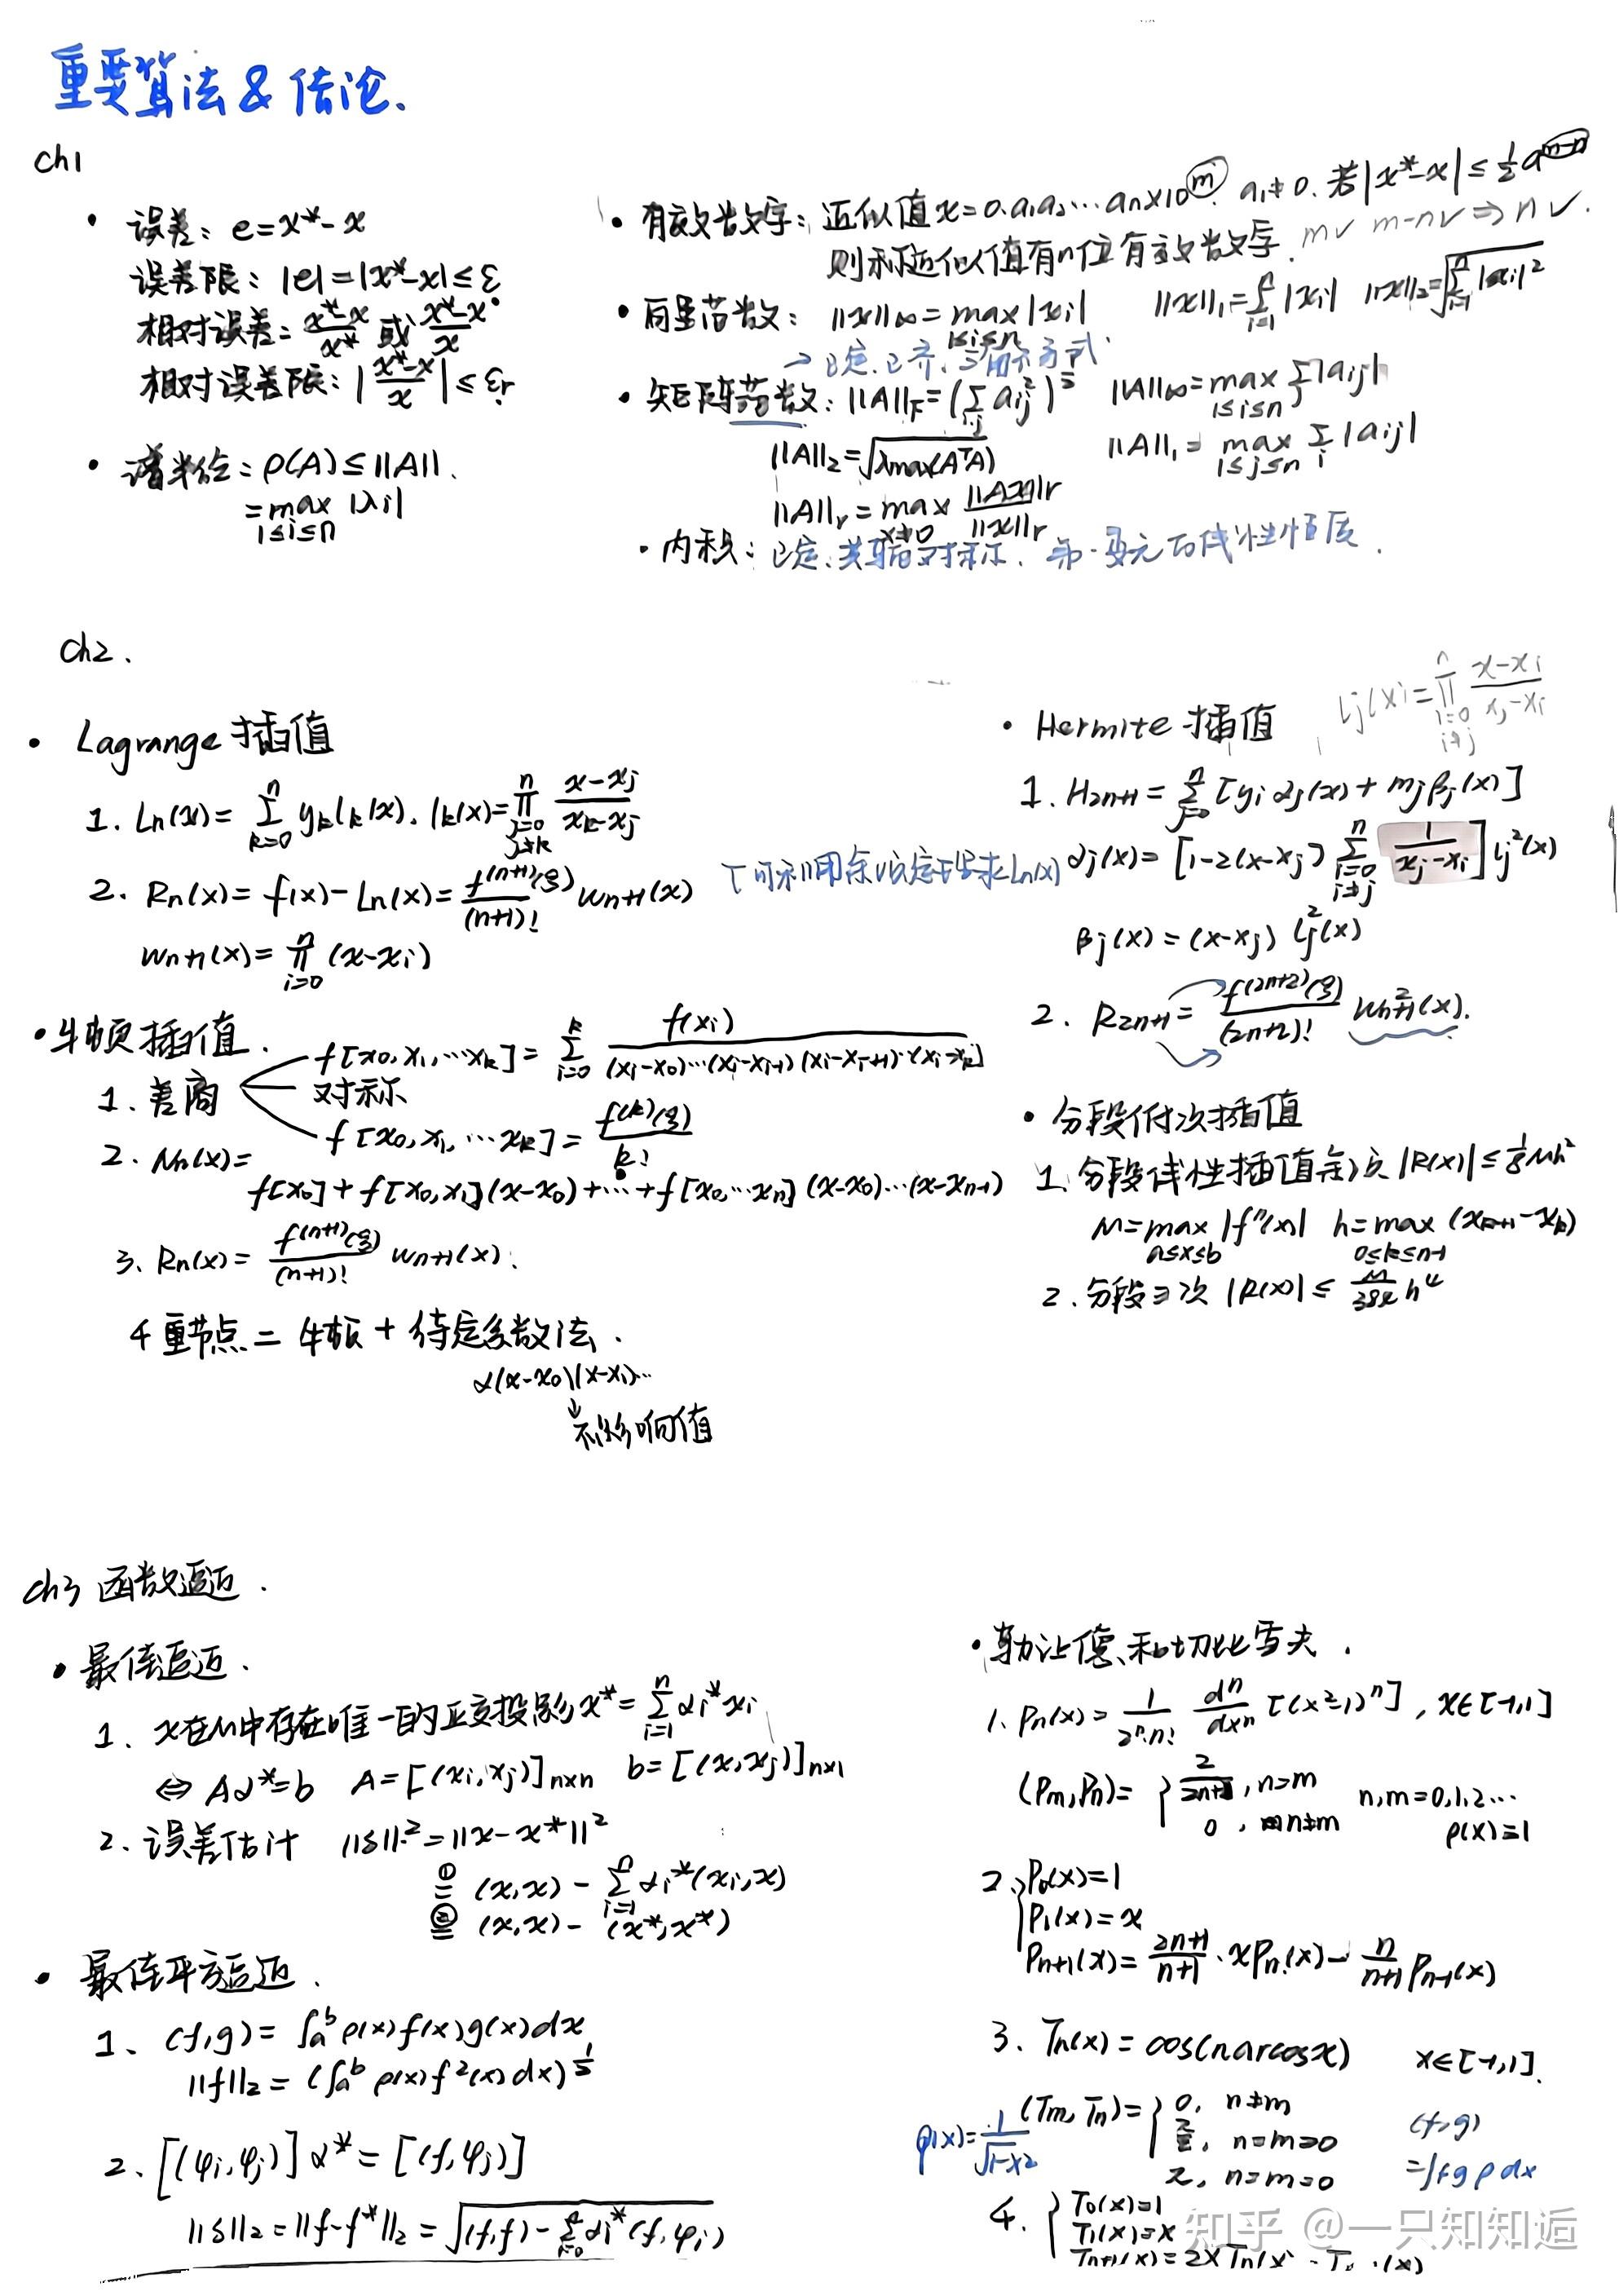 重要算法 & 结论.
ch1
• 误差: e=x*-x
误差限: |e|=|x*-x|≤ε
相对误差= (x*-x)/x* 或 (x*-x)/x
相对误差限: |(x*-x)/x|≤εr
• 谱半径: ρ(A)≤||A||.
=max |λi|
1≤i≤n
• 有效数字: 近似值 x=0.a1a2…an×10^m. a1≠0. 若|x*-x|≤1/2 a^(m-n)
则称近似值有n位有效数字. m✓ m-n✓ ⇒ n✓.
• 向量范数: ||x||∞=max|xi| ||x||1=Σ(i=1,n)|xi| ||x||2=√(Σ(i=1,n)|xi|²)
1≤i≤n
→正定.正齐.三角不等式.
• 矩阵范数: ||A||F=(Σ(i,j) aij²)^(1/2) ||A||∞=max(1≤i≤n) Σj|aij|
||A||2=√(λmax(AᵀA)) ||A||1=max(1≤j≤n) Σi|aij|
||A||r=max(x≠0) ||Ax||r/||x||r
• 内积: 正定.共轭对称. 第一变元的线性性质.
ch2.
• Lagrange 插值
1. Ln(x)=Σ(k=0,n) yk lk(x). lk(x)=∏(j=0,j≠k,n) (x-xj)/(xk-xj)
2. Rn(x)=f(x)-Ln(x)=f^(n+1)(ξ)/(n+1)! wn+1(x)
wn+1(x)=∏(i=0,n)(x-xi)
• 牛顿插值.
1. 差商
f[x0,x1,…xk]=Σ(i=0,k) f(xi)/((xi-x0)…(xi-xi-1)(xi-xi+1)…(xi-xk))
对称
f[x0,x1,…xk]=f^(k)(ξ)/k!
2. Nn(x)=
f[x0]+f[x0,x1](x-x0)+…+f[x0,…xn](x-x0)…(x-xn-1)
3. Rn(x)=f^(n+1)(ξ)/(n+1)! wn+1(x).
4 重节点=牛顿+待定系数法.
α(x-x0)(x-x1)…
↓
不影响值
• Hermite 插值 lj(x)=∏(i=0,i≠j,n) (x-xi)/(xj-xi)
1. H2n+1=Σ(j=0,n)[yi αj(x)+mj βj(x)]
αj(x)=[1-2(x-xj)Σ(i=0,i≠j,n) 1/(xj-xi)] lj²(x)
βj(x)=(x-xj) lj²(x)
2. R2n+1=f^(2n+2)(ξ)/(2n+2)! wn+1²(x).
• 分段低次插值
1. 分段线性插值余项 |R(x)|≤1/8 Mh²
M=max(a≤x≤b)|f''(x)| h=max(0≤k≤n-1)(xk+1-xk)
2. 分段三次 |R(x)|≤M/384 h⁴
ch3 函数逼近.
• 最佳逼近.
1. x在M中存在唯一的正交投影 x*=Σ(i=1,n) αi* xi
⇔ Aα*=b A=[(xi,xj)]n×n b=[(x,xj)]n×1
2. 误差估计 ||δ||²=||x-x*||²
①= (x,x)-Σ(i=1,n) αi*(xi,x)
②= (x,x)-(x*,x*)
• 最佳平方逼近.
1. (f,g)=∫a^b ρ(x)f(x)g(x)dx
||f||2=(∫a^b ρ(x)f²(x)dx)^(1/2)
2. [(φi,φj)] α*=[(f,φj)]
||δ||2=||f-f*||2=√((f,f)-Σ(i=0,n) αi*(f,φi))
• 勒让德和切比雪夫.
1. Pn(x)=1/(2ⁿ·n!) dⁿ/dxⁿ[(x²-1)ⁿ], x∈[-1,1]
(Pm,Pn)={2/(2n+1), n=m n,m=0,1,2…
0, n≠m ρ(x)=1
2. {P0(x)=1
P1(x)=x
Pn+1(x)=(2n+1)/(n+1)·xPn(x)-n/(n+1) Pn-1(x)
3. Tn(x)=cos(n arcosx) x∈[-1,1].
ρ(x)=1/√(1-x²) (Tm,Tn)={0, n≠m
π/2, n=m≠0
π, n=m=0
(f,g)
=∫fgρdx
4. {T0(x)=1
T1(x)=x
Tn+1(x)=2xTn(x)-T
知乎 @一只知知逅